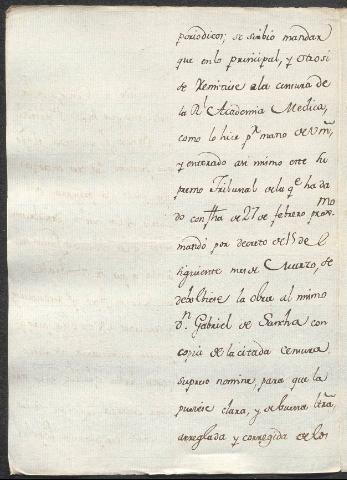 periodicos; se sirbio mandar
que en lo principal, y otro si
se remitiese a la censura de
la Rl. Academia Medica,
como lo hice pr. mano de Vm,
y enterado asi mismo este Su
premo Tribunal de la qe. ha da
do con fha de 27 de febrero proxmo
mandó por decreto de 15 de el
siguiente mes de Marzo, se
debolbiese la obra al mismo
Dn. Gabriel de Sancha con
copia de la citada censura
supreso nomine, para que la
pusiese clara, y de buena letra,
arreglada y corregida de los